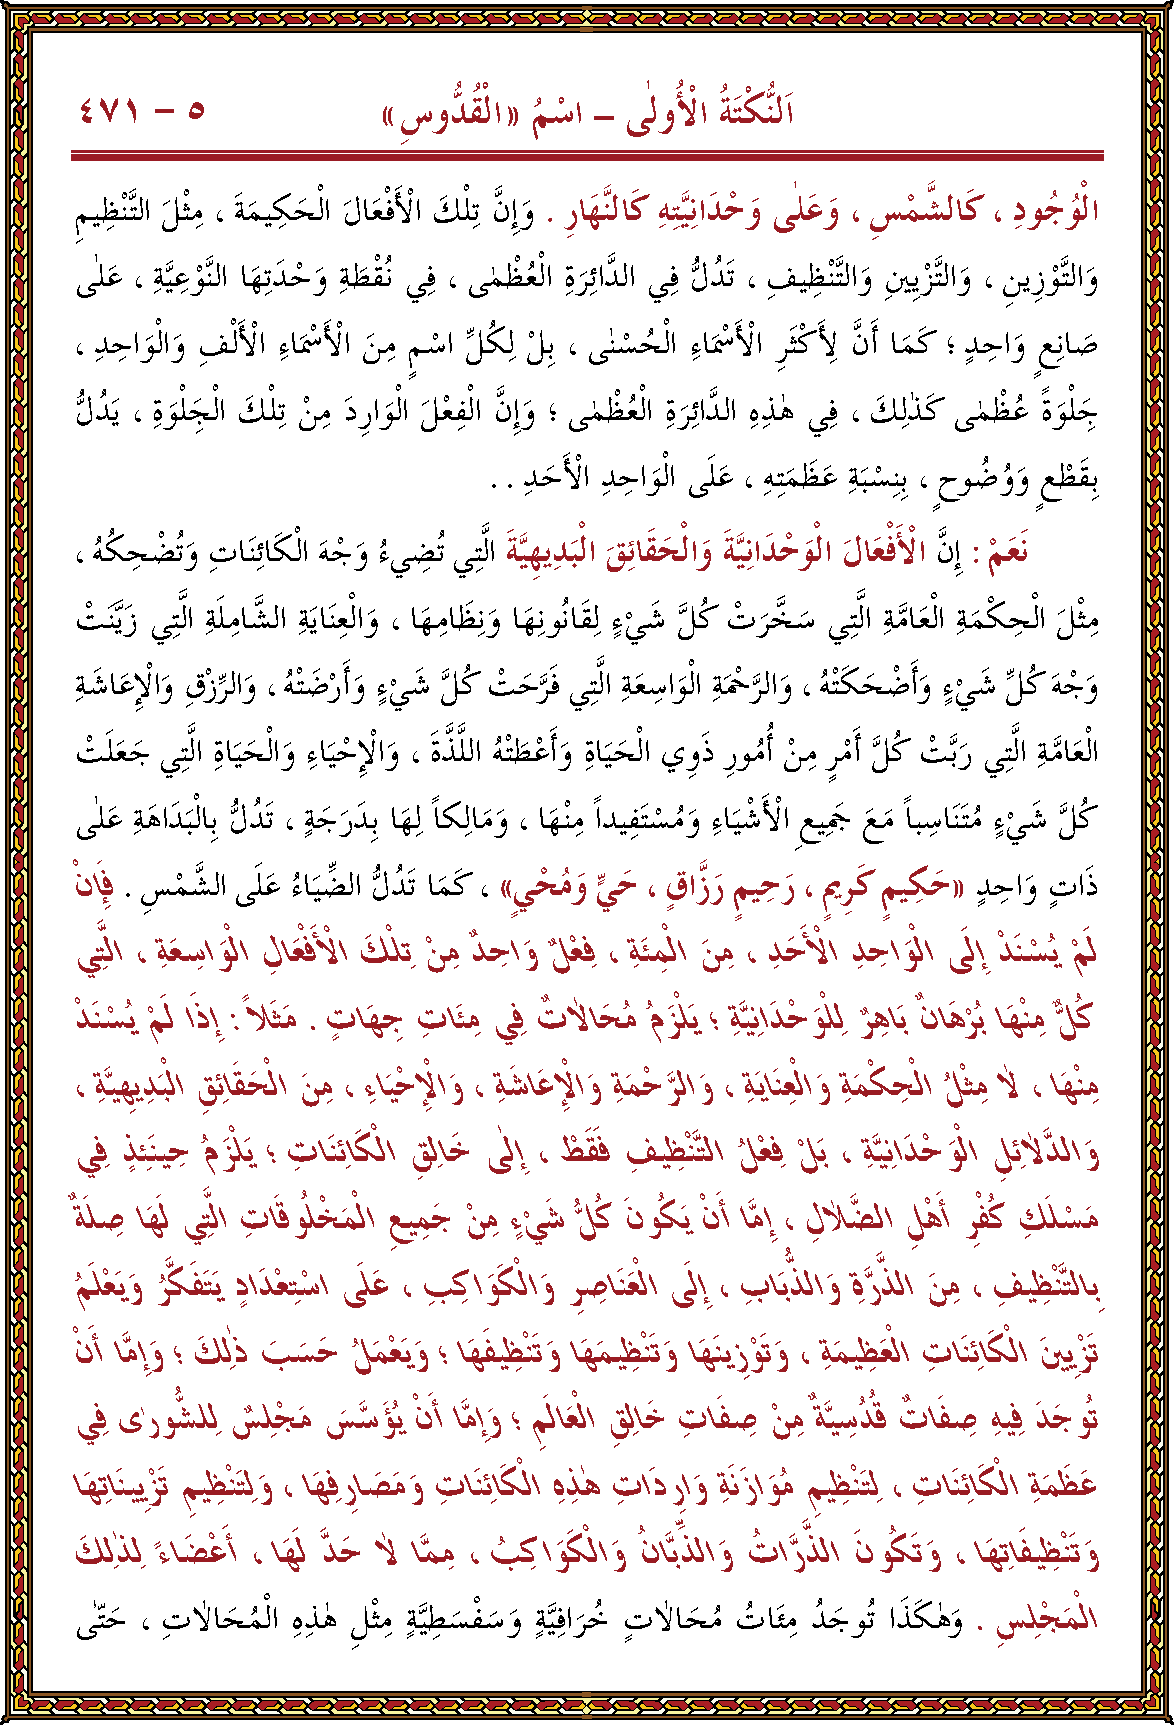 اَلنُّكْتَةُ الْأُولٰى – اسْمُ «الْقُدُّوسِ» ٥ – ٤٧١
الْوُجُودِ ، كَالشَّمْسِ ، وَعَلٰى وَحْدَانِيَّتِهِ كَالنَّهَارِ . وَإِنَّ تِلْكَ الْأَفْعَالَ الْحَكِيمَةَ ، مِثْلَ التَّنْظِيمِ
وَالتَّوْزِينِ ، وَالتَّزْيِينِ وَالتَّنْظِيفِ ، تَدُلُّ فِي الدَّائِرَةِ الْعُظْمٰى ، فِي نُقْطَةِ وَحْدَتِهَا النَّوْعِيَّةِ ، عَلٰى
صَانِعٍ وَاحِدٍ ؛ كَمَا أَنَّ لِأَكْثَرِ الْأَسْمَاءِ الْحُسْنٰى ، بَلْ لِكُلِّ اسْمٍ مِنَ الْأَسْمَاءِ الْأَلْفِ وَالْوَاحِدِ ،
جَلْوَةً عُظْمٰى كَذٰلِكَ ، فِي هٰذِهِ الدَّائِرَةِ الْعُظْمٰى ؛ وَإِنَّ الْفِعْلَ الْوَارِدَ مِنْ تِلْكَ الْجَلْوَةِ ، يَدُلُّ
بِقَطْعٍ وَوُضُوحٍ ، بِنِسْبَةِ عَظَمَتِهِ ، عَلَى الْوَاحِدِ الْأَحَدِ . .
نَعَمْ : إِنَّ الْأَفْعَالَ الْوَحْدَانِيَّةَ وَالْحَقَائِقَ الْبَدِيهِيَّةَ الَّتِي تُضِيءُ وَجْهَ الْكَائِنَاتِ وَتُضْحِكُهُ ،
مِثْلَ الْحِكْمَةِ الْعَامَّةِ الَّتِي سَخَّرَتْ كُلَّ شَيْءٍ لِقَانُونِهَا وَنِظَامِهَا ، وَالْعِنَايَةِ الشَّامِلَةِ الَّتِي زَيَّنَتْ
وَجْهَ كُلِّ شَيْءٍ وَأَضْحَكَتْهُ ، وَالرَّحْمَةِ الْوَاسِعَةِ الَّتِي فَرَّحَتْ كُلَّ شَيْءٍ وَأَرْضَتْهُ ، وَالرِّزْقِ وَالْإِعَاشَةِ
الْعَامَّةِ الَّتِي رَبَّتْ كُلَّ أَمْرٍ مِنْ أُمُورِ ذَوِي الْحَيَاةِ وَأَعْطَتْهُ اللَّذَّةَ ، وَالْإِحْيَاءِ وَالْحَيَاةِ الَّتِي جَعَلَتْ
كُلَّ شَيْءٍ مُتَنَاسِباً مَعَ جَمِيعِ الْأَشْيَاءِ وَمُسْتَفِيداً مِنْهَا ، وَمَالِكاً لِهَا بِدَرَجَةٍ ، تَدُلُّ بِالْبَدَاهَةِ عَلٰى
ذَاتٍ وَاحِدٍ «حَكِيمٍ كَرِيمٍ ، رَحِيمٍ رَزَّاقٍ ، حَيٍّ وَمُحْيٍ» ، كَمَا تَدُلُّ الضِّيَاءُ عَلَى الشَّمْسِ . فَإِنْ
لَمْ يُسْنَدْ إِلَى الْوَاحِدِ الْأَحَدِ ، مِنَ الْمِئَةِ ، فِعْلٌ وَاحِدٌ مِنْ تِلْكَ الْأَفْعَالِ الْوَاسِعَةِ ، الَّتِي
كُلٌّ مِنْهَا بُرْهَانٌ بَاهِرٌ لِلْوَحْدَانِيَّةِ ؛ يَلْزَمُ مُحَالَاتٌ فِي مِئَاتِ جِهَاتٍ . مَثَلاً : إِذَا لَمْ يُسْنَدْ
مِنْهَا ، لَا مِثْلُ الْحِكْمَةِ وَالْعِنَايَةِ ، وَالرَّحْمَةِ وَالْإِعَاشَةِ ، وَالْإِحْيَاءِ ، مِنَ الْحَقَائِقِ الْبَدِيهِيَّةِ ،
وَالدَّلَائِلِ الْوَحْدَانِيَّةِ ، بَلْ فِعْلُ التَّنْظِيفِ فَقَطْ ، إِلٰى خَالِقِ الْكَائِنَاتِ ؛ يَلْزَمُ حِينَئِذٍ فِي
مَسْلَكِ كُفْرِ أَهْلِ الضَّلَالِ ، إِمَّا أَنْ يَكُونَ كُلُّ شَيْءٍ مِنْ جَمِيعِ الْمَخْلُوقَاتِ الَّتِي لَهَا صِلَةٌ
بِالتَّنْظِيفِ ، مِنَ الذَّرَّةِ وَالذُّبَابِ ، إِلَى الْعَنَاصِرِ وَالْكَوَاكِبِ ، عَلَى اسْتِعْدَادٍ يَتَفَكَّرُ وَيَعْلَمُ
تَزْيِينَ الْكَائِنَاتِ الْعَظِيمَةِ ، وَتَوْزِينَهَا وَتَنْظِيمَهَا وَتَنْظِيفَهَا ؛ وَيَعْمَلُ حَسَبَ ذٰلِكَ ؛ وَإِمَّا أَنْ
تُوجَدَ فِيهِ صِفَةٌ قُدُسِيَّةٌ مِنْ صِفَاتِ خَالِقِ الْعَالَمِ ؛ وَإِمَّا أَنْ يُؤَسَّسَ مَجْلِسٌ لِلشُّورٰى فِي
عَظَمَةِ الْكَائِنَاتِ ، لِتَنْظِيمِ مُوَازَنَةِ وَارِدَاتِ هٰذِهِ الْكَائِنَاتِ وَمَصَارِفِهَا ، وَلِتَنْظِيمِ تَزْيِينَاتِهَا
وَتَنْظِيفَاتِهَا ، وَتَكُونَ الذَّرَّاتُ وَالذِّبَّانُ وَالْكَوَاكِبُ ، مِمَّا لَا حَدَّ لَهَا ، أَعْضَاءً لِذٰلِكَ
الْمَجْلِسِ . وَهٰكَذَا تُوجَدُ مِئَاتُ مُحَالَاتٍ خُرَافِيَّةٍ وَسَفْسَطِيَّةٍ مِثْلِ هٰذِهِ الْمُحَالَاتِ ، حَتّٰى